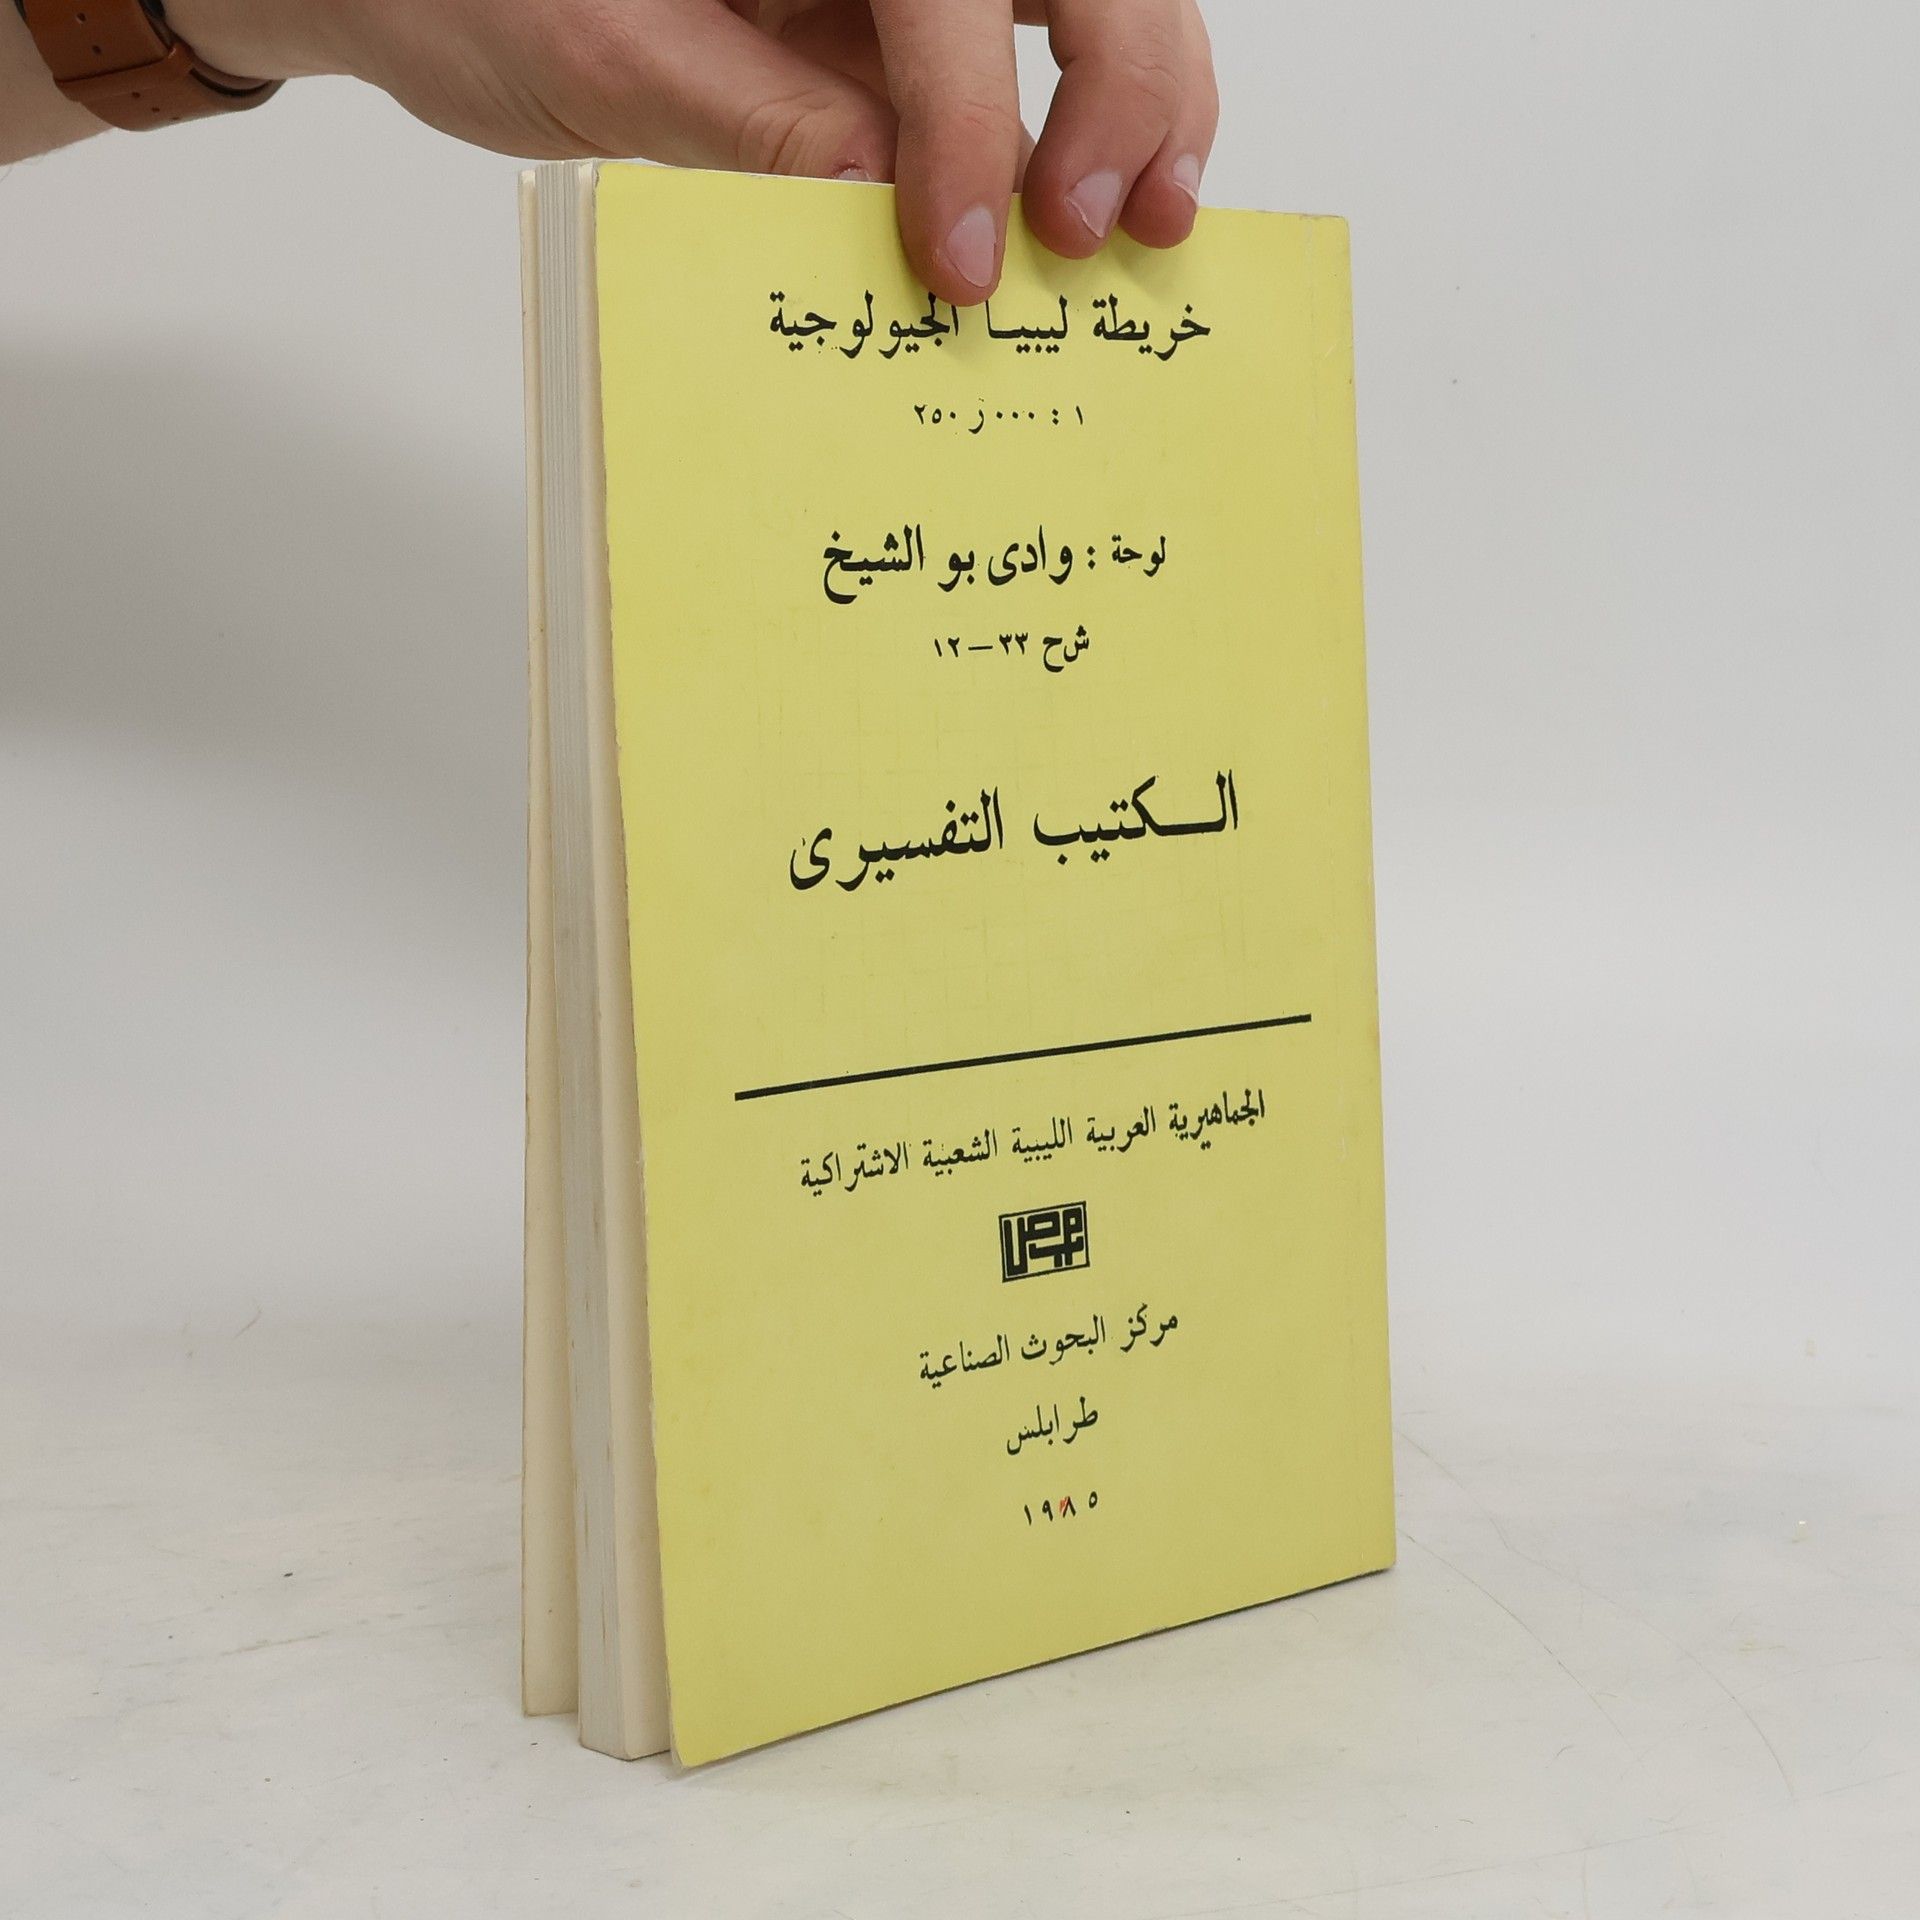 خريطة ليبيا الجيولوجية
١ : ٢٥٠ر٠٠٠
لوحة : وادى بو الشيخ
ش ح ٣٣ – ١٢
الكتيب التفسيرى
الجماهيرية العربية الليبية الشعبية الاشتراكية
مركز البحوث الصناعية
طرابلس
١٩٨٥